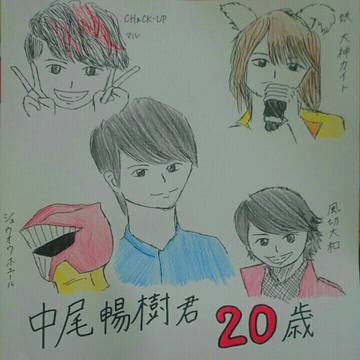 CHaCK-UP
マル
大神カイト
風切大和
ジュウオウホエール
中尾暢樹君 20歳